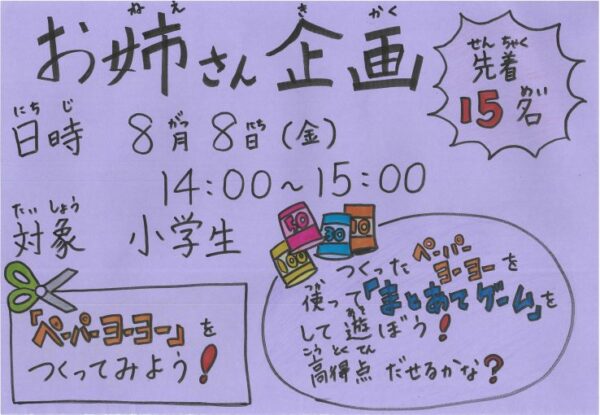 お姉さん企画
ねえ きかく
先着
せんちゃく
15名
めい
日時 8月8日(金)
にちじ がつ にち
14:00～15:00
対象 小学生
たいしょう
50
30
10
100
「ペーパーヨーヨー」を
つくってみよう!
つくったペーパーヨーヨーを
使って「まとあてゲーム」を
つか
して遊ぼう!
あそ
高得点だせるかな?
こうとくてん